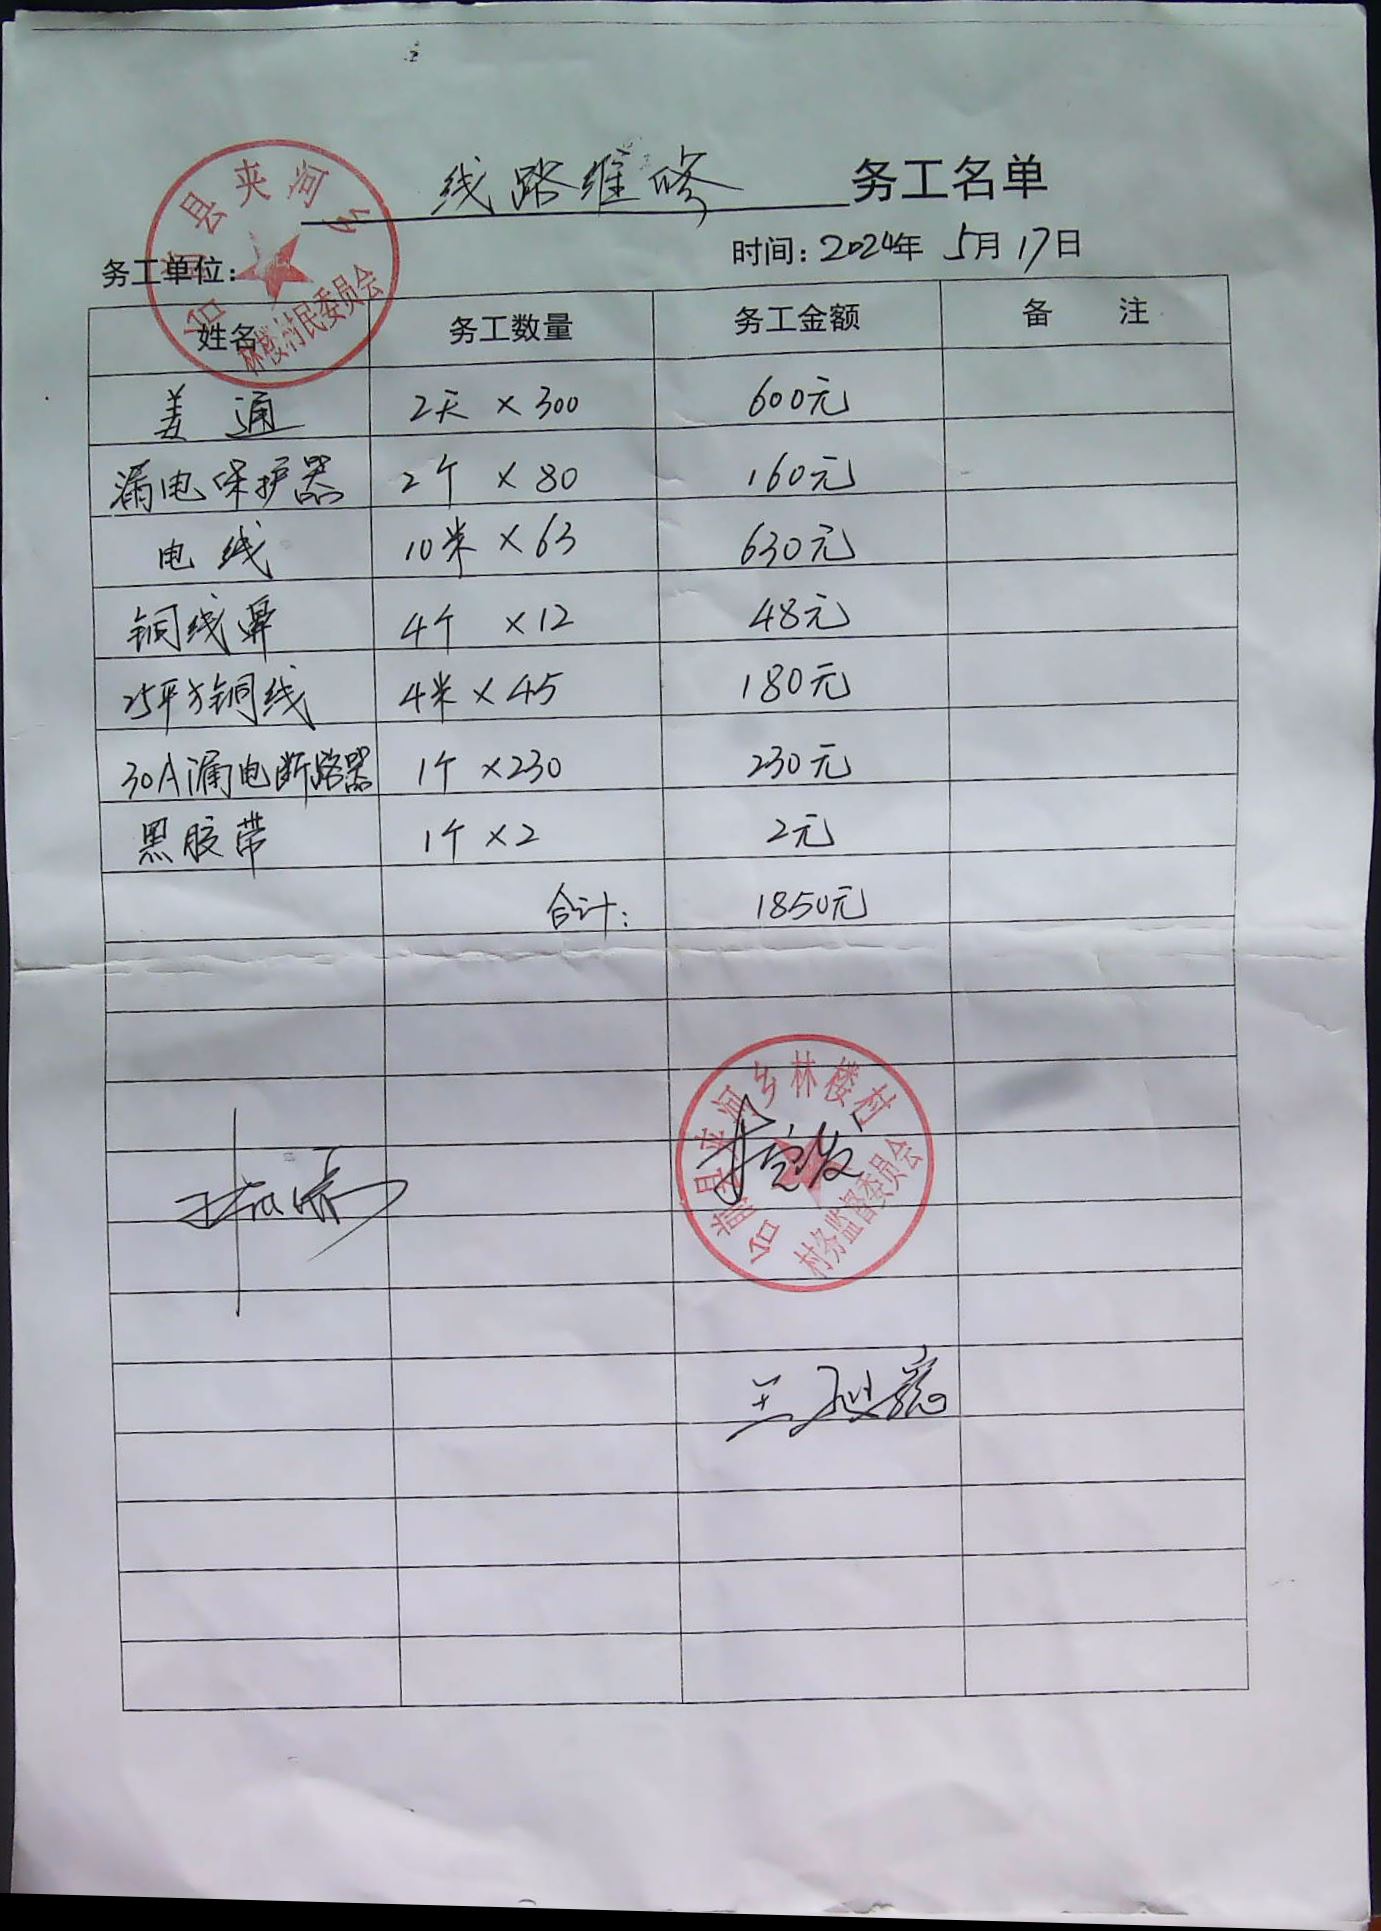 线路维修 务工名单
务工单位: 时间: 2024年 5月 17日
台前县夹河乡
林楼村民委员会
姓名 务工数量 务工金额 备 注
姜 通 2天 × 300 600元
漏电保护器 2个 × 80 160元
电 线 10米 × 63 630元
铜线鼻 4个 ×12 48元
25平方铜线 4米 × 45 180元
30A漏电断路器 1个 ×230 230元
黑胶带 1个 ×2 2元
合计: 1850元
台前县夹河乡林楼村
村务监督委员会